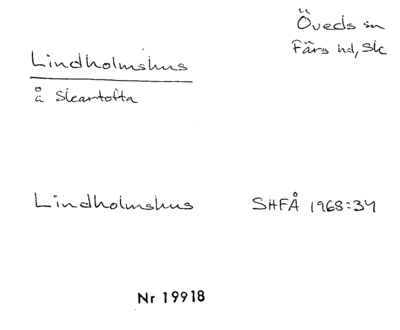 Öveds sn
Färs hd, Sk
Lindholmshus
å Skartofta
Lindholmshus SHFÅ 1968:34
Nr 19918